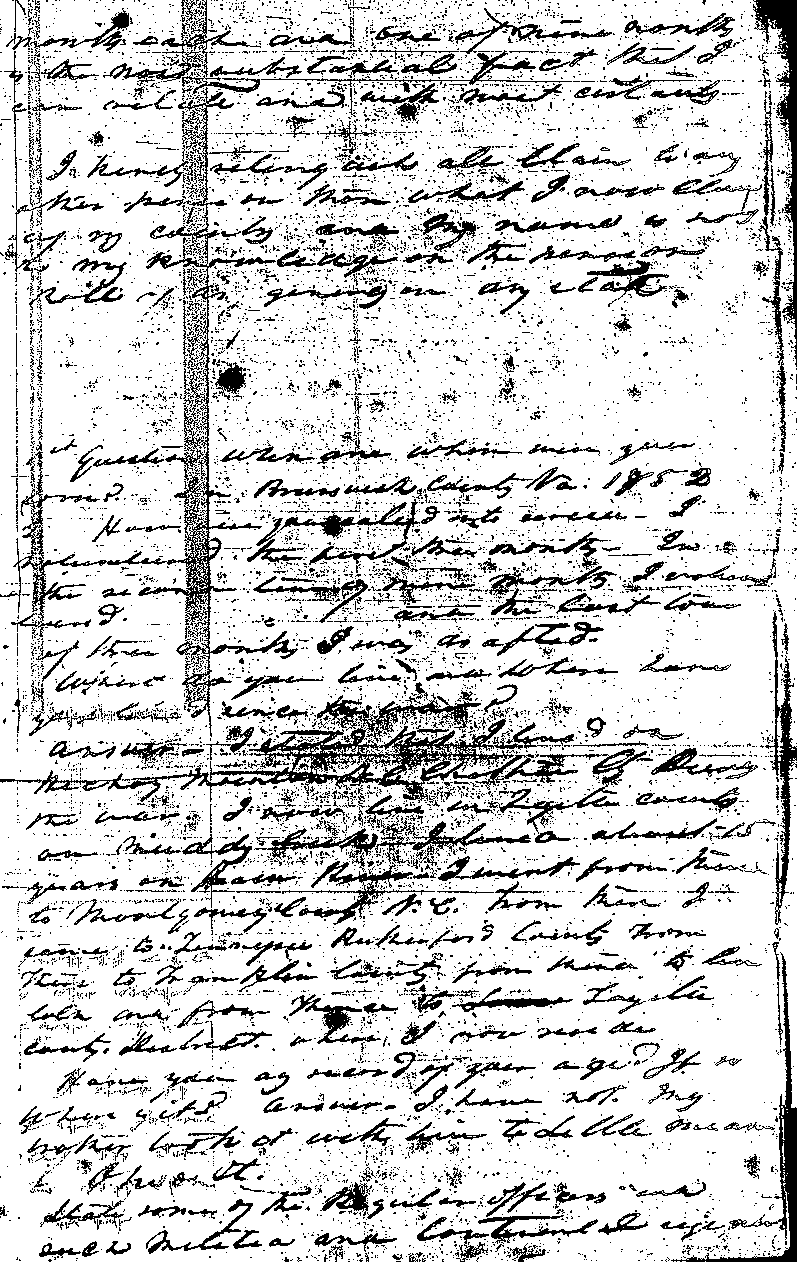 months each and one of nine months
is the most substantial fact that I
can relate and with most certainty
I hereby relinquish all Claim to any
other pension than what I now Claim
of my county and my name is not
to my knowledge on the pension
Roll of any agency in any state
1st Question when and where were you
born? in Brunswick County Va. 1752
2 How were you called into service - I
volunteered the first three months - In
the second time of nine months I volun
teered. and the last tour
of three months I was drafted.
Where do you live and where have
you lived since the war?
answer - I stated that I lived on
Hickory Mountain N.C. Chatham Cty During
the war. I now live in Fayette county
on Muddy Creek - I lived about 15
years on River I went from there
to Montgomery County N.C. from there I
came to Tennessee Rutherford County from
there to Franklin County from thence to Lin
coln and from thence to Fayette
county. district. where I now reside
Have you any record of your age? If so
where is it? answer - I have not. My
brother took it with him to
State some of the Regular officers and
such Militia and Continental